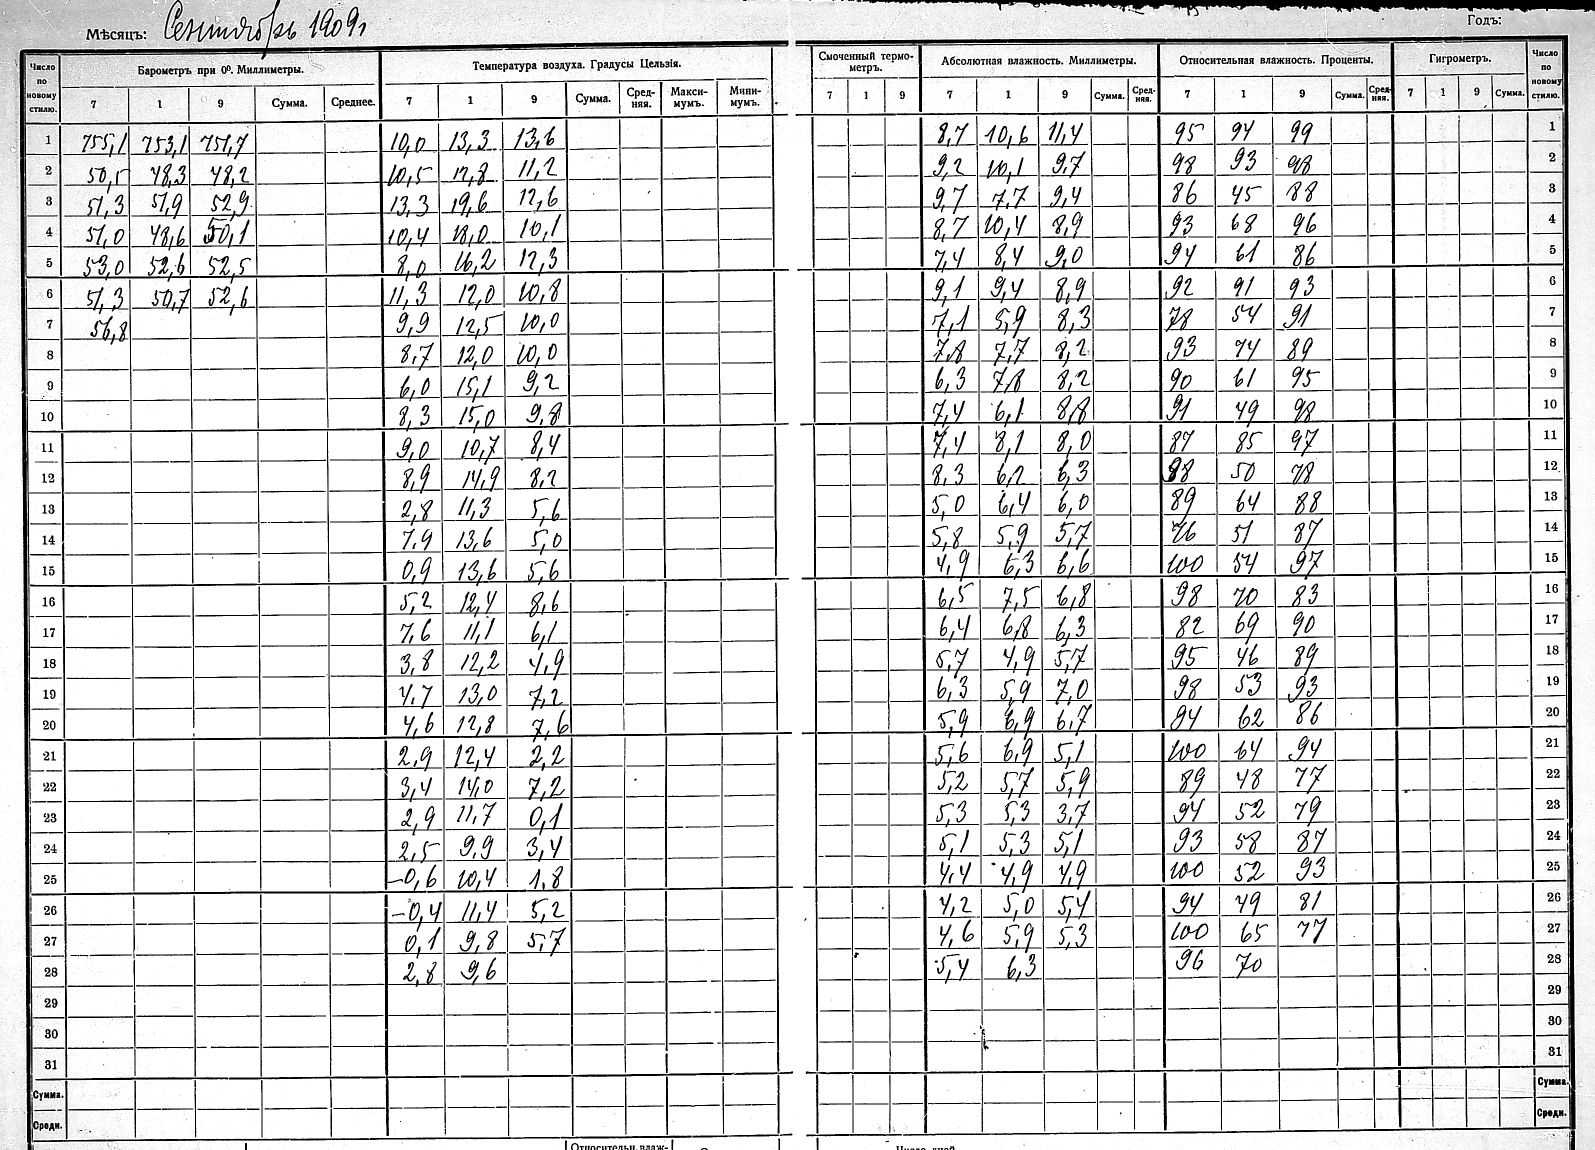 Мѣсяцъ: Сентябрь 1909г
Годъ:
Число по новому стилю. Барометръ при 0º. Миллиметры. Температура воздуха. Градусы Цельзія. Смоченный термо-метръ. Абсолютная влажность. Миллиметры. Относительная влажность. Проценты. Гигрометръ. Число по новому стилю.
7 1 9 Сумма. Среднее. 7 1 9 Сумма. Сред-няя. Макси-мумъ. Мини-мумъ. 7 1 9 7 1 9 Сумма. Сред-няя. 7 1 9 Сумма. Сред-няя. 7 1 9 Сумма.
1 755,1 753,1 751,7 10,0 13,3 13,6 8,7 10,6 11,4 95 94 99 1
2 50,5 48,3 48,2 10,5 12,8 11,2 9,2 10,1 9,7 98 93 98 2
3 51,3 51,9 52,9 13,3 19,6 12,6 9,7 7,7 9,4 86 45 88 3
4 51,0 48,6 50,1 10,4 18,0 10,1 8,7 10,4 8,9 93 68 96 4
5 53,0 52,6 52,5 8,0 16,2 12,3 7,4 8,4 9,0 94 61 86 5
6 51,3 50,7 52,6 11,3 12,0 10,8 9,1 9,4 8,9 92 91 93 6
7 56,8 9,9 12,5 10,0 7,1 5,9 8,3 78 54 91 7
8 8,7 12,0 10,0 7,8 7,7 8,2 93 74 89 8
9 6,0 15,1 9,2 6,3 7,8 8,2 90 61 95 9
10 8,3 15,0 9,8 7,4 6,1 8,8 91 49 98 10
11 9,0 10,7 8,4 7,4 8,1 8,0 87 85 97 11
12 8,9 14,9 8,2 8,3 6,2 6,3 98 50 78 12
13 2,8 11,3 5,6 5,0 6,4 6,0 89 64 88 13
14 7,9 13,6 5,0 5,8 5,9 5,7 76 51 87 14
15 0,9 13,6 5,6 4,9 6,3 6,6 100 54 97 15
16 5,2 12,4 8,6 6,5 7,5 6,8 98 70 83 16
17 7,6 11,1 6,1 6,4 6,8 6,3 82 69 90 17
18 3,8 12,2 4,9 5,7 4,9 5,7 95 46 89 18
19 4,7 13,0 7,2 6,3 5,9 7,0 98 53 93 19
20 4,6 12,8 7,6 5,9 6,9 6,7 94 62 86 20
21 2,9 12,4 2,2 5,6 6,9 5,1 100 64 94 21
22 3,4 14,0 7,2 5,2 5,7 5,9 89 48 77 22
23 2,9 11,7 0,1 5,3 5,3 3,7 94 52 79 23
24 2,5 9,9 3,4 5,1 5,3 5,1 93 58 87 24
25 -0,6 10,4 1,8 4,4 4,9 4,9 100 52 93 25
26 -0,4 11,4 5,2 4,2 5,0 5,4 94 49 81 26
27 0,1 9,8 5,7 4,6 5,9 5,3 100 65 77 27
28 2,8 9,6 5,4 6,3 96 70 28
29 29
30 30
31 31
Сумма. Сумма.
Средн. Средн.
Относительн. влаж-